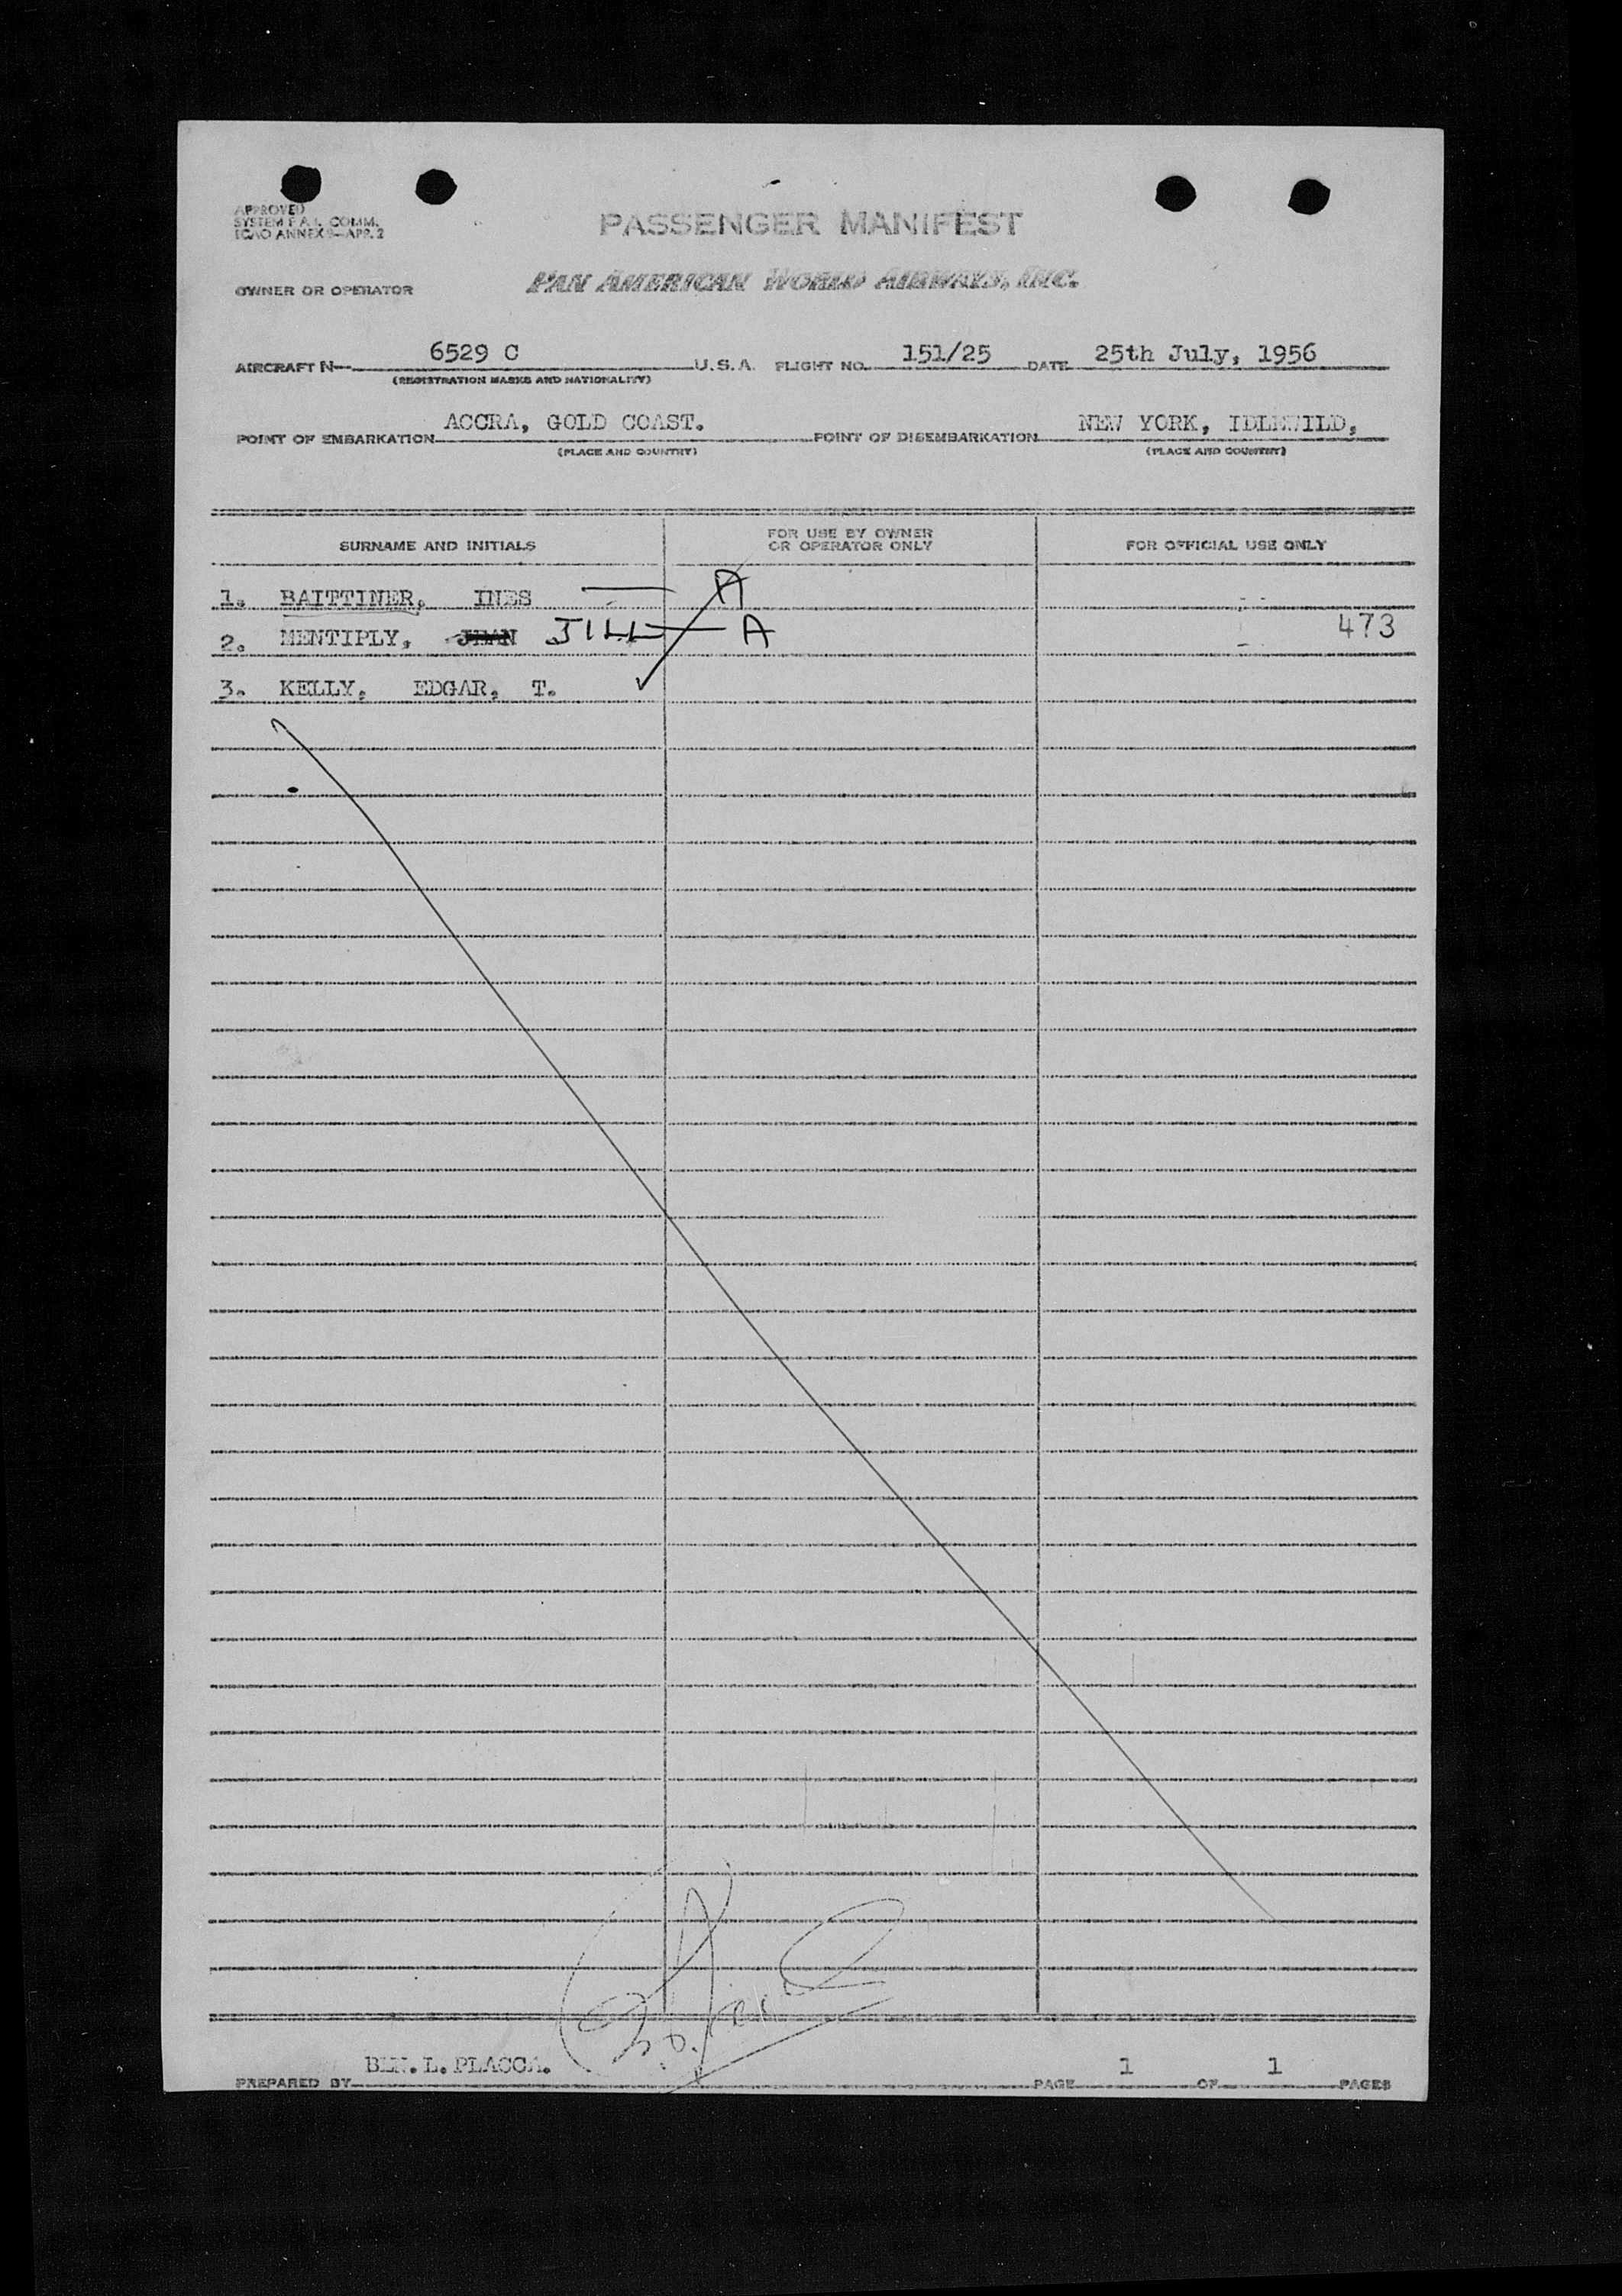 APPROVED
SYSTEM F.A.L. COMM.
ICAO ANNEX 9—APP. 2
PASSENGER MANIFEST
OWNER OR OPERATOR PAN AMERICAN WORLD AIRWAYS, INC.
AIRCRAFT N— 6529 C U.S.A. FLIGHT NO. 151/25 DATE 25th July, 1956
(REGISTRATION MARKS AND NATIONALITY)
POINT OF EMBARKATION ACCRA, GOLD COAST. POINT OF DISEMBARKATION NEW YORK, IDLEWILD,
(PLACE AND COUNTRY) (PLACE AND COUNTRY)
SURNAME AND INITIALS FOR USE BY OWNER OR OPERATOR ONLY FOR OFFICIAL USE ONLY
1. BAITTINER, INES — A
2. MENTIPLY, JEAN JILL — A 473
3. KELLY, EDGAR, T. ✓
PREPARED BY BEN. L. PLACCA. PAGE 1 OF 1 PAGES